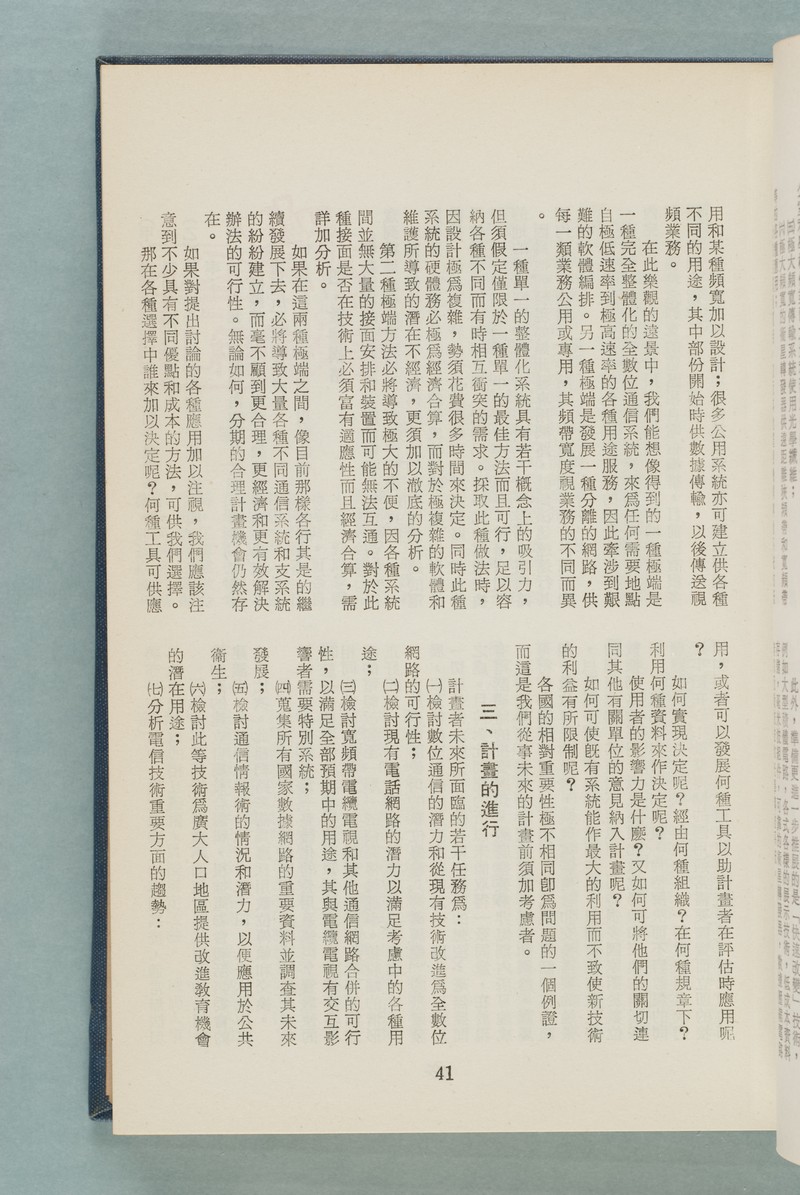 用和某種頻寬加以設計；很多公用系統亦可建立供各種
不同的用途，其中部份開始時供數據傳輸，以後傳送視
頻業務。
在此樂觀的遠景中，我們能想像得到的一種極端是
一種完全整體化的全數位通信系統，來爲任何需要地點
自極低速率到極高速率的各種用途服務，因此牽涉到艱
難的軟體編排。另一種極端是發展一種分離的網路，供
每一類業務公用或專用，其頻帶寬度視業務的不同而異
。
一種單一的整體化系統具有若干概念上的吸引力，
但須假定僅限於一種單一的最佳方法而且可行，足以容
納各種不同而有時相互衝突的需求。採取此種做法時，
因設計極爲複雜，勢須花費很多時間來決定。同時此種
系統的硬體務必極爲經濟合算，而對於極複雜的軟體和
維護所導致的潛在不經濟，更須加以澈底的分析。
第二種極端方法必將導致極大的不便，因各種系統
間並無大量的接面安排和裝置而可能無法互通。對於此
種接面是否在技術上必須富有適應性而且經濟合算，需
詳加分析。
如果在這兩種極端之間，像目前那樣各行其是的繼
續發展下去，必將導致大量各種不同通信系統和支系統
的紛紛建立，而毫不顧到更合理，更經濟和更有效解決
辦法的可行性。無論如何，分期的合理計畫機會仍然存
在。
如果對提出討論的各種應用加以注視，我們應該注
意到不少具有不同優點和成本的方法，可供我們選擇。
那在各種選擇中誰來加以決定呢？何種工具可供應
用，或者可以發展何種工具以助計畫者在評估時應用呢
？
如何實現決定呢？經由何種組織？在何種規章下？
利用何種資料來作決定呢？
使用者的影響力是什麼？又如何可將他們的關切連
同其他有關單位的意見納入計畫呢？
如何可使旣有系統能作最大的利用而不致使新技術
的利益有所限制呢？
各國的相對重要性極不相同卽爲問題的一個例證，
而這是我們從事未來的計畫前須加考慮者。
三、計畫的進行
計畫者未來所面臨的若干任務爲：
㈠檢討數位通信的潛力和從現有技術改進爲全數位
網路的可行性；
㈡檢討現有電話網路的潛力以滿足考慮中的各種用
途；
㈢檢討寬頻帶電纜電視和其他通信網路合併的可行
性，以滿足全部預期中的用途，其與電纜電視有交互影
響者需要特別系統；
㈣蒐集所有國家數據網路的重要資料並調查其未來
發展；
㈤檢討通信情報術的情況和潛力，以便應用於公共
衞生；
㈥檢討此等技術爲廣大人口地區提供改進敎育機會
的潛在用途；
㈦分析電信技術重要方面的趨勢：
41